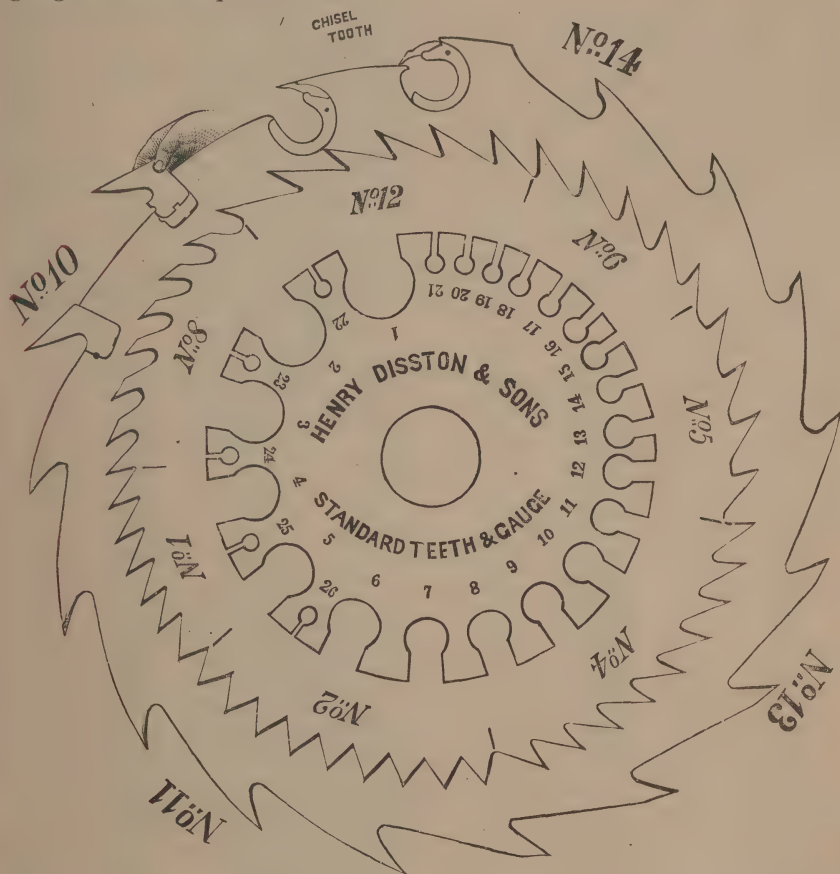 CHISEL
TOOTH
No. 14
No. 12
No. 6
No. 10
No. 8
No. 5
No. 1
No. 4
No. 2
No. 13
No. 11
HENRY DISSTON & SONS
STANDARD TEETH & GAUGE
1
2
3
4
5
6
7
8
9
10
11
12
13
14
15
16
17
18
19
20
21
22
23
24
25
26